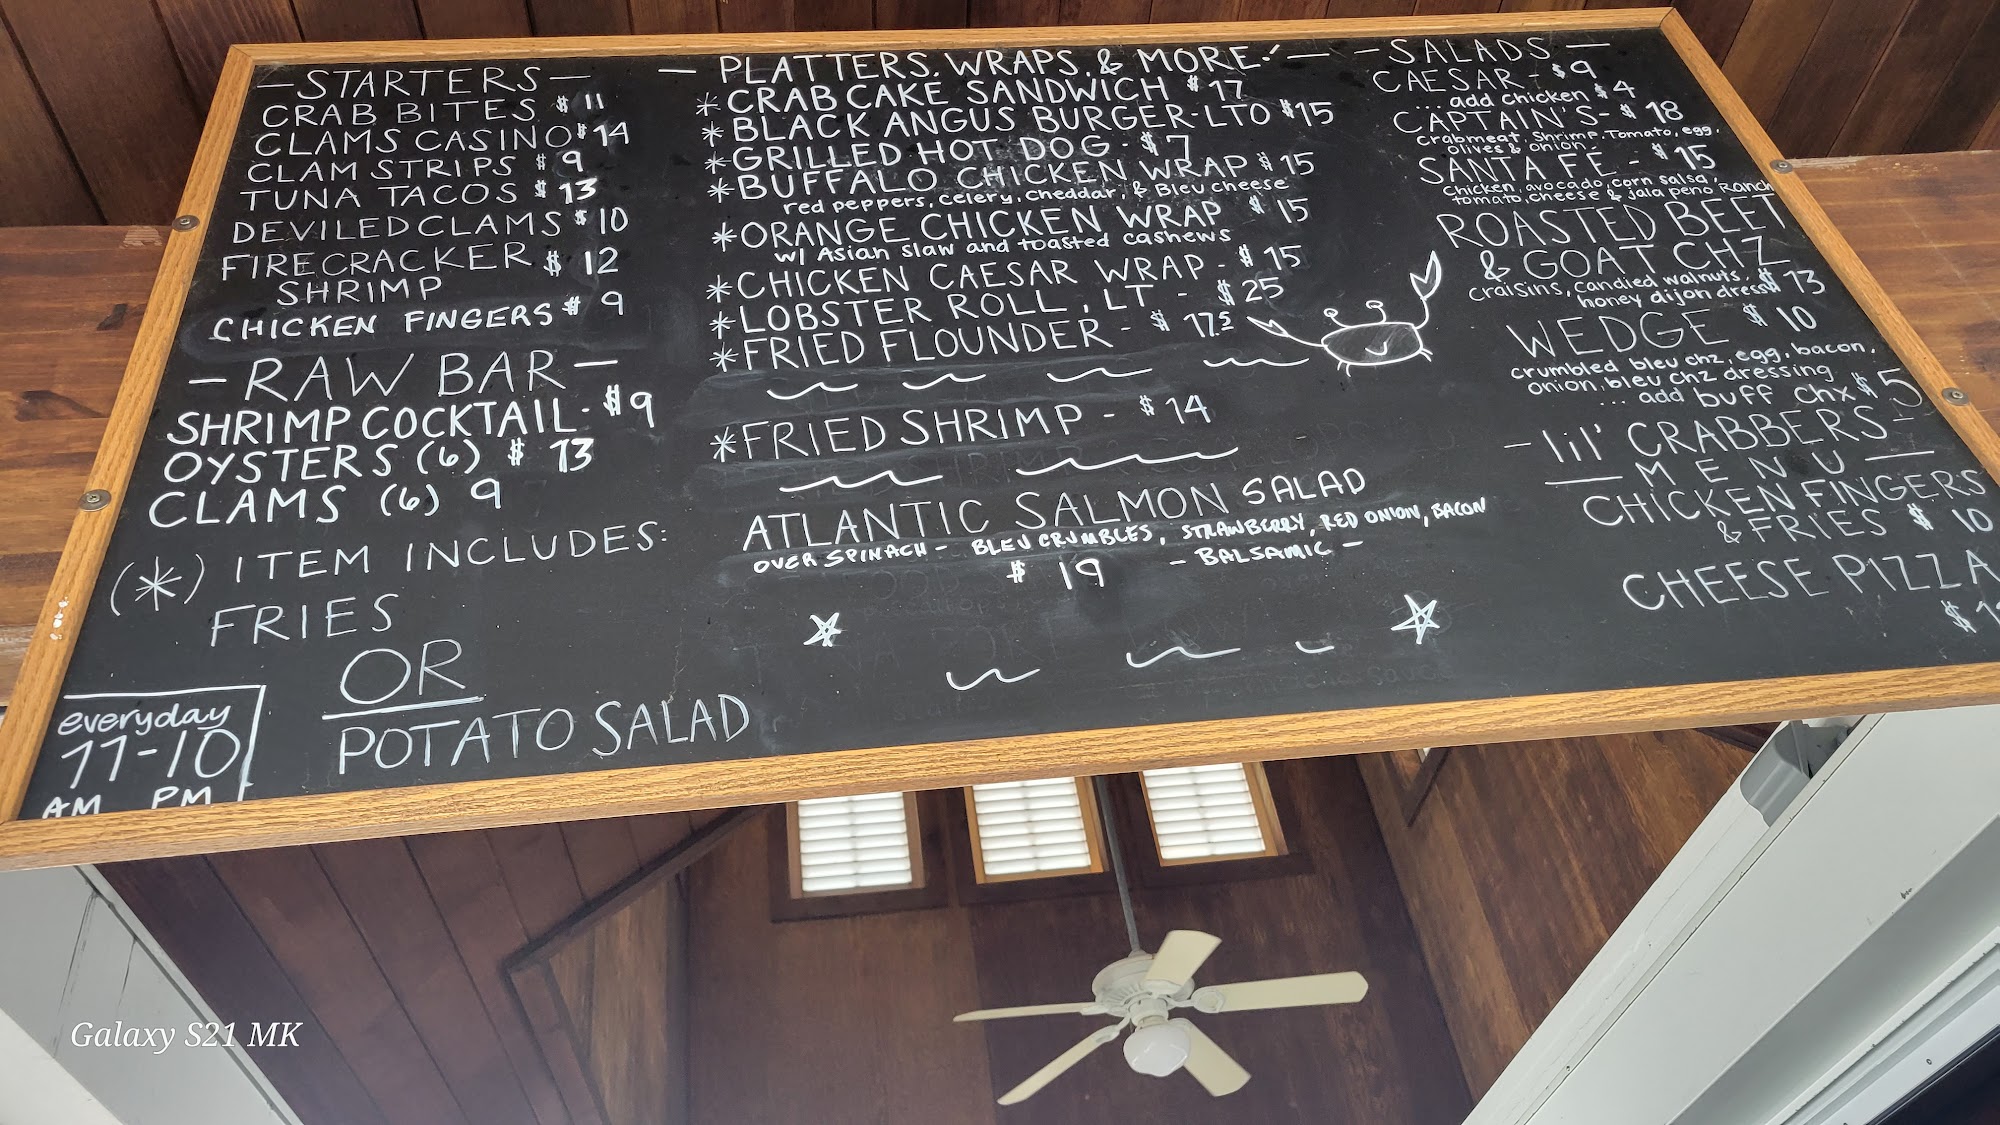 —STARTERS—
CRAB BITES $11
CLAMS CASINO $14
CLAM STRIPS $9
TUNA TACOS $13
DEVILED CLAMS $10
FIRECRACKER $12
SHRIMP
CHICKEN FINGERS $9
—RAW BAR—
SHRIMP COCKTAIL - $9
OYSTERS (6) $13
CLAMS (6) 9
(*) ITEM INCLUDES:
FRIES
OR
POTATO SALAD
everyday
11-10
AM PM
— PLATTERS, WRAPS, & MORE! —
*CRAB CAKE SANDWICH $17
*BLACK ANGUS BURGER-LTO $15
*GRILLED HOT DOG - $7
*BUFFALO CHICKEN WRAP $15
red peppers, celery, cheddar, & Bleu cheese
*ORANGE CHICKEN WRAP $15
w/ Asian slaw and toasted cashews
*CHICKEN CAESAR WRAP - $15
*LOBSTER ROLL, LT - $25
*FRIED FLOUNDER - $17.5
*FRIED SHRIMP - $14
ATLANTIC SALMON SALAD
OVER SPINACH - BLEU CRUMBLES, STRAWBERRY, RED ONION, BACON
$19 - BALSAMIC -
—SALADS—
CAESAR - $9
... add chicken $4
CAPTAIN'S - $18
crabmeat, Shrimp, Tomato, egg,
olives & onion
SANTA FE - $15
Chicken, avocado, corn salsa,
tomato, cheese & jalapeno Ranch
ROASTED BEET
& GOAT CHZ
craisins, candied walnuts, $13
honey dijon dress
WEDGE $10
crumbled bleu chz, egg, bacon,
onion, bleu chz dressing
... add buff chx $5
—lil' CRABBERS—
— MENU —
CHICKEN FINGERS
& FRIES $10
CHEESE PIZZA
Galaxy S21 MK